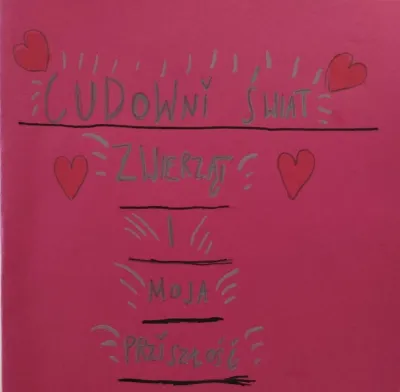 CUDOWNI ŚWIAT
ZWIERZĄT
I
MOJA
PRZISZŁOŚĆ